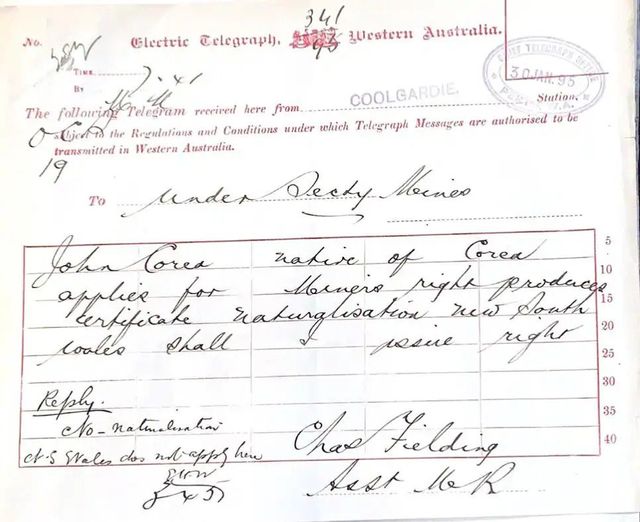 341
No. Electric Telegraph, Western Australia.
93
TIME 7.41
BY
CHIEF TELEGRAPH OFFICE
30 JAN. 95
PERTH W.A.
The following Telegram received here from COOLGARDIE. Station.
subject to the Regulations and Conditions under which Telegraph Messages are authorised to be
transmitted in Western Australia.
19
To Under Secty Mines
John Corea native of Corea 5
applies for Miners right produces 10
certificate naturalisation new South 15
wales shall I issue right 20
25
30
Reply. 35
No - naturalisation
Chas Fielding 40
N.S Wales does not apply here
Asst M R